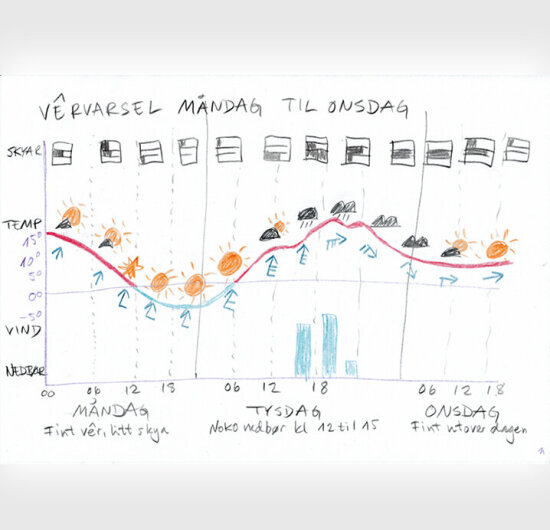 VÊRVARSEL MÅNDAG TIL ONSDAG
SKYAR
TEMP
15°
10°
5°
0°
-5°
VIND
NEDBØR
00 06 12 18 06 12 18 06 12 18
MÅNDAG TYSDAG ONSDAG
Fint vêr, litt skya Noko nedbør kl 12 til 15 Fint utover dagen